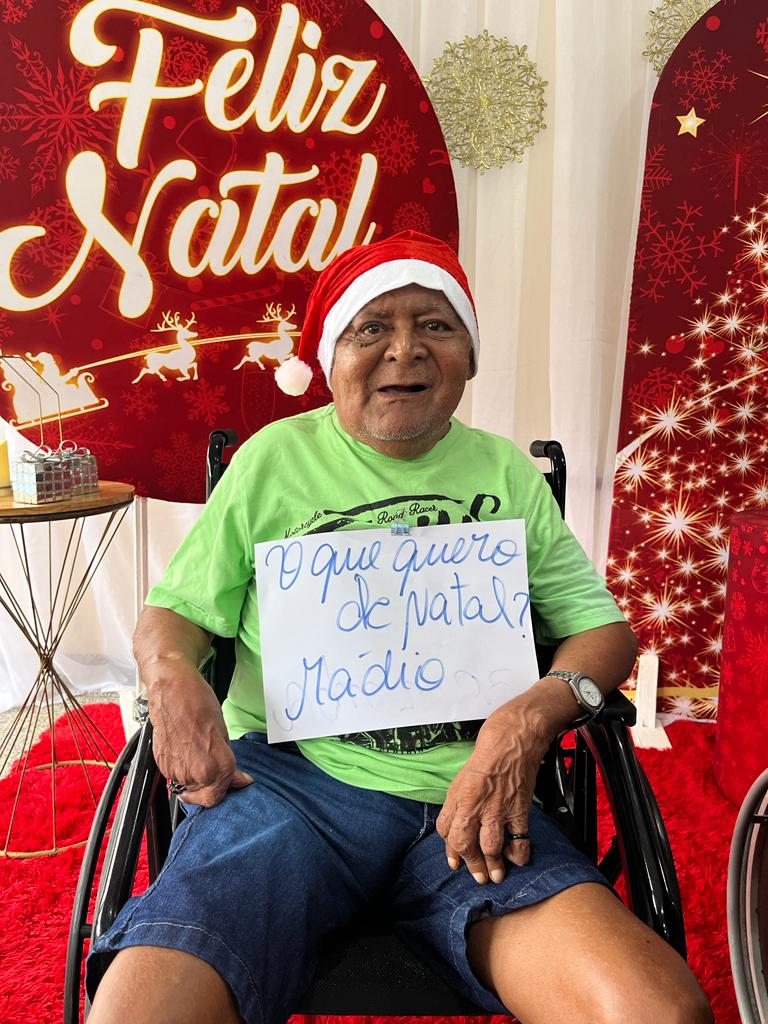 Feliz
Natal
Motorcycle Road Racer
O que quero
de Natal?
Rádio